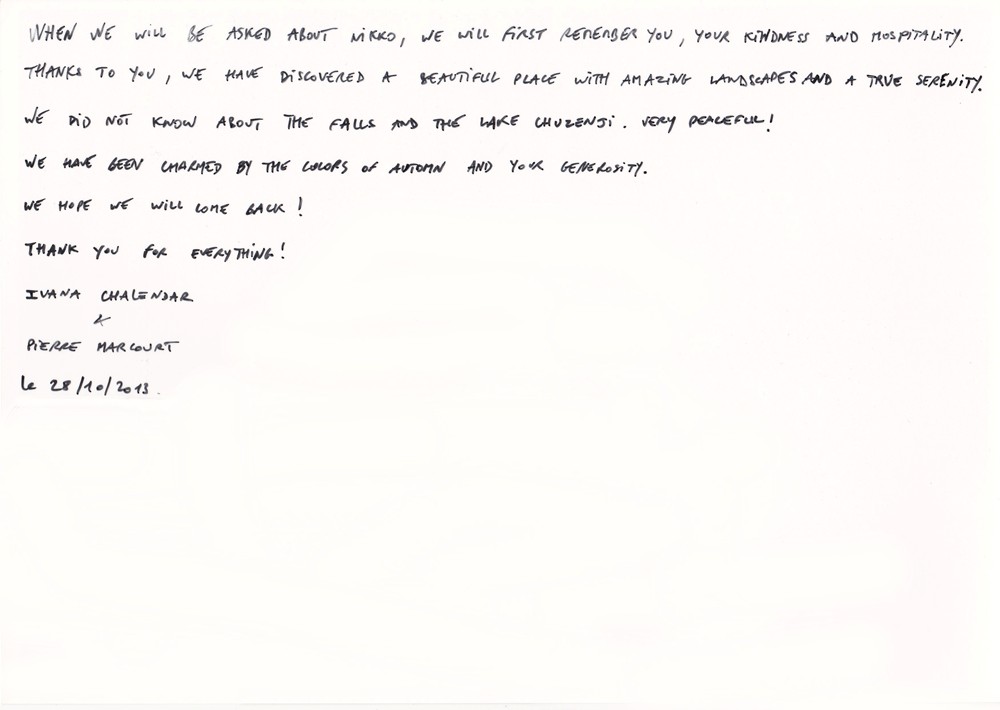 WHEN WE WILL BE ASKED ABOUT NIKKO, WE WILL FIRST REMEMBER YOU, YOUR KINDNESS AND HOSPITALITY.
THANKS TO YOU, WE HAVE DISCOVERED A BEAUTIFUL PLACE WITH AMAZING LANDSCAPES AND A TRUE SERENITY.
WE DID NOT KNOW ABOUT THE FALLS AND THE LAKE CHUZENJI. VERY PEACEFUL!
WE HAVE BEEN CHARMED BY THE COLORS OF AUTOMN AND YOUR GENEROSITY.
WE HOPE WE WILL COME BACK!
THANK YOU FOR EVERYTHING!
IVANA CHALENDAR
&
PIERRE MARCOURT
le 28/10/2013.